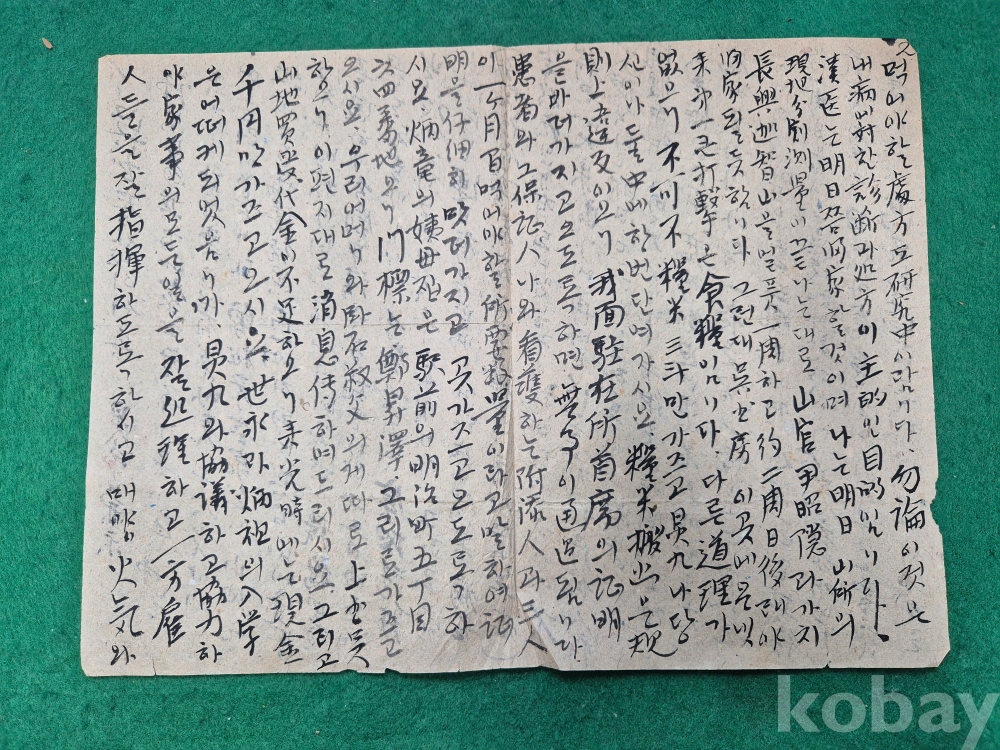 2
먹어야할處方도硏究中사람니다. 勿論이것은
내病에對한診斷과処方이主的인目的임니다.
漢医는明日쯤回家할것이며 나는明日 山所의
現地分割測量이끝나는대로 山官尹昭隱과가치
長興迦智山을 一周하고約二周日後래야
回家될듯함니다 그런대 이곳에온
第一큰打擊은食糧임니다. 다른道理가
없으니 不可不 糧米三斗만가즈고昊九나당
신이나둘中에한번단여가시요. 糧米搬出은規
則上違反이오니 我面駐在所首席의証明
을바더가지고오도록하면 無事이通過됨니다.
患者와그保証人나와看護하는附添人과三人
이一个月間먹어야할所要数量이라고말하여証
明을仔細히맛터가지고 곳가즈고오도록하
시요. 炳竜의姨母집은 駅前의明治町五丁目
四番地오니 門標는鄭昇澤. 그리로가즐
오시요. 우리어머니와卧石叔父의게따로上書못
하오니이편지대로消息传하여드리시요. 그리고
山地買受代金이不足하오니来光時에는現金
千円만가즈고오시요. 世永과炳祖의入学
은어떠케되엿음니까. 昊九와協議하고協力하
야家事의모든일을잘処理하고 一方雇
人들을잘指揮하도록하시고 매양火気와
kobay